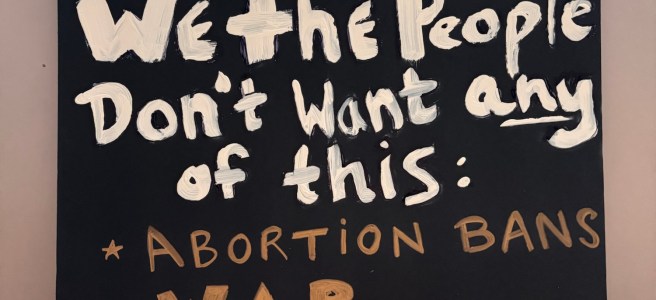 We the People
Don't Want any
of this:
* ABORTION BANS
WAR